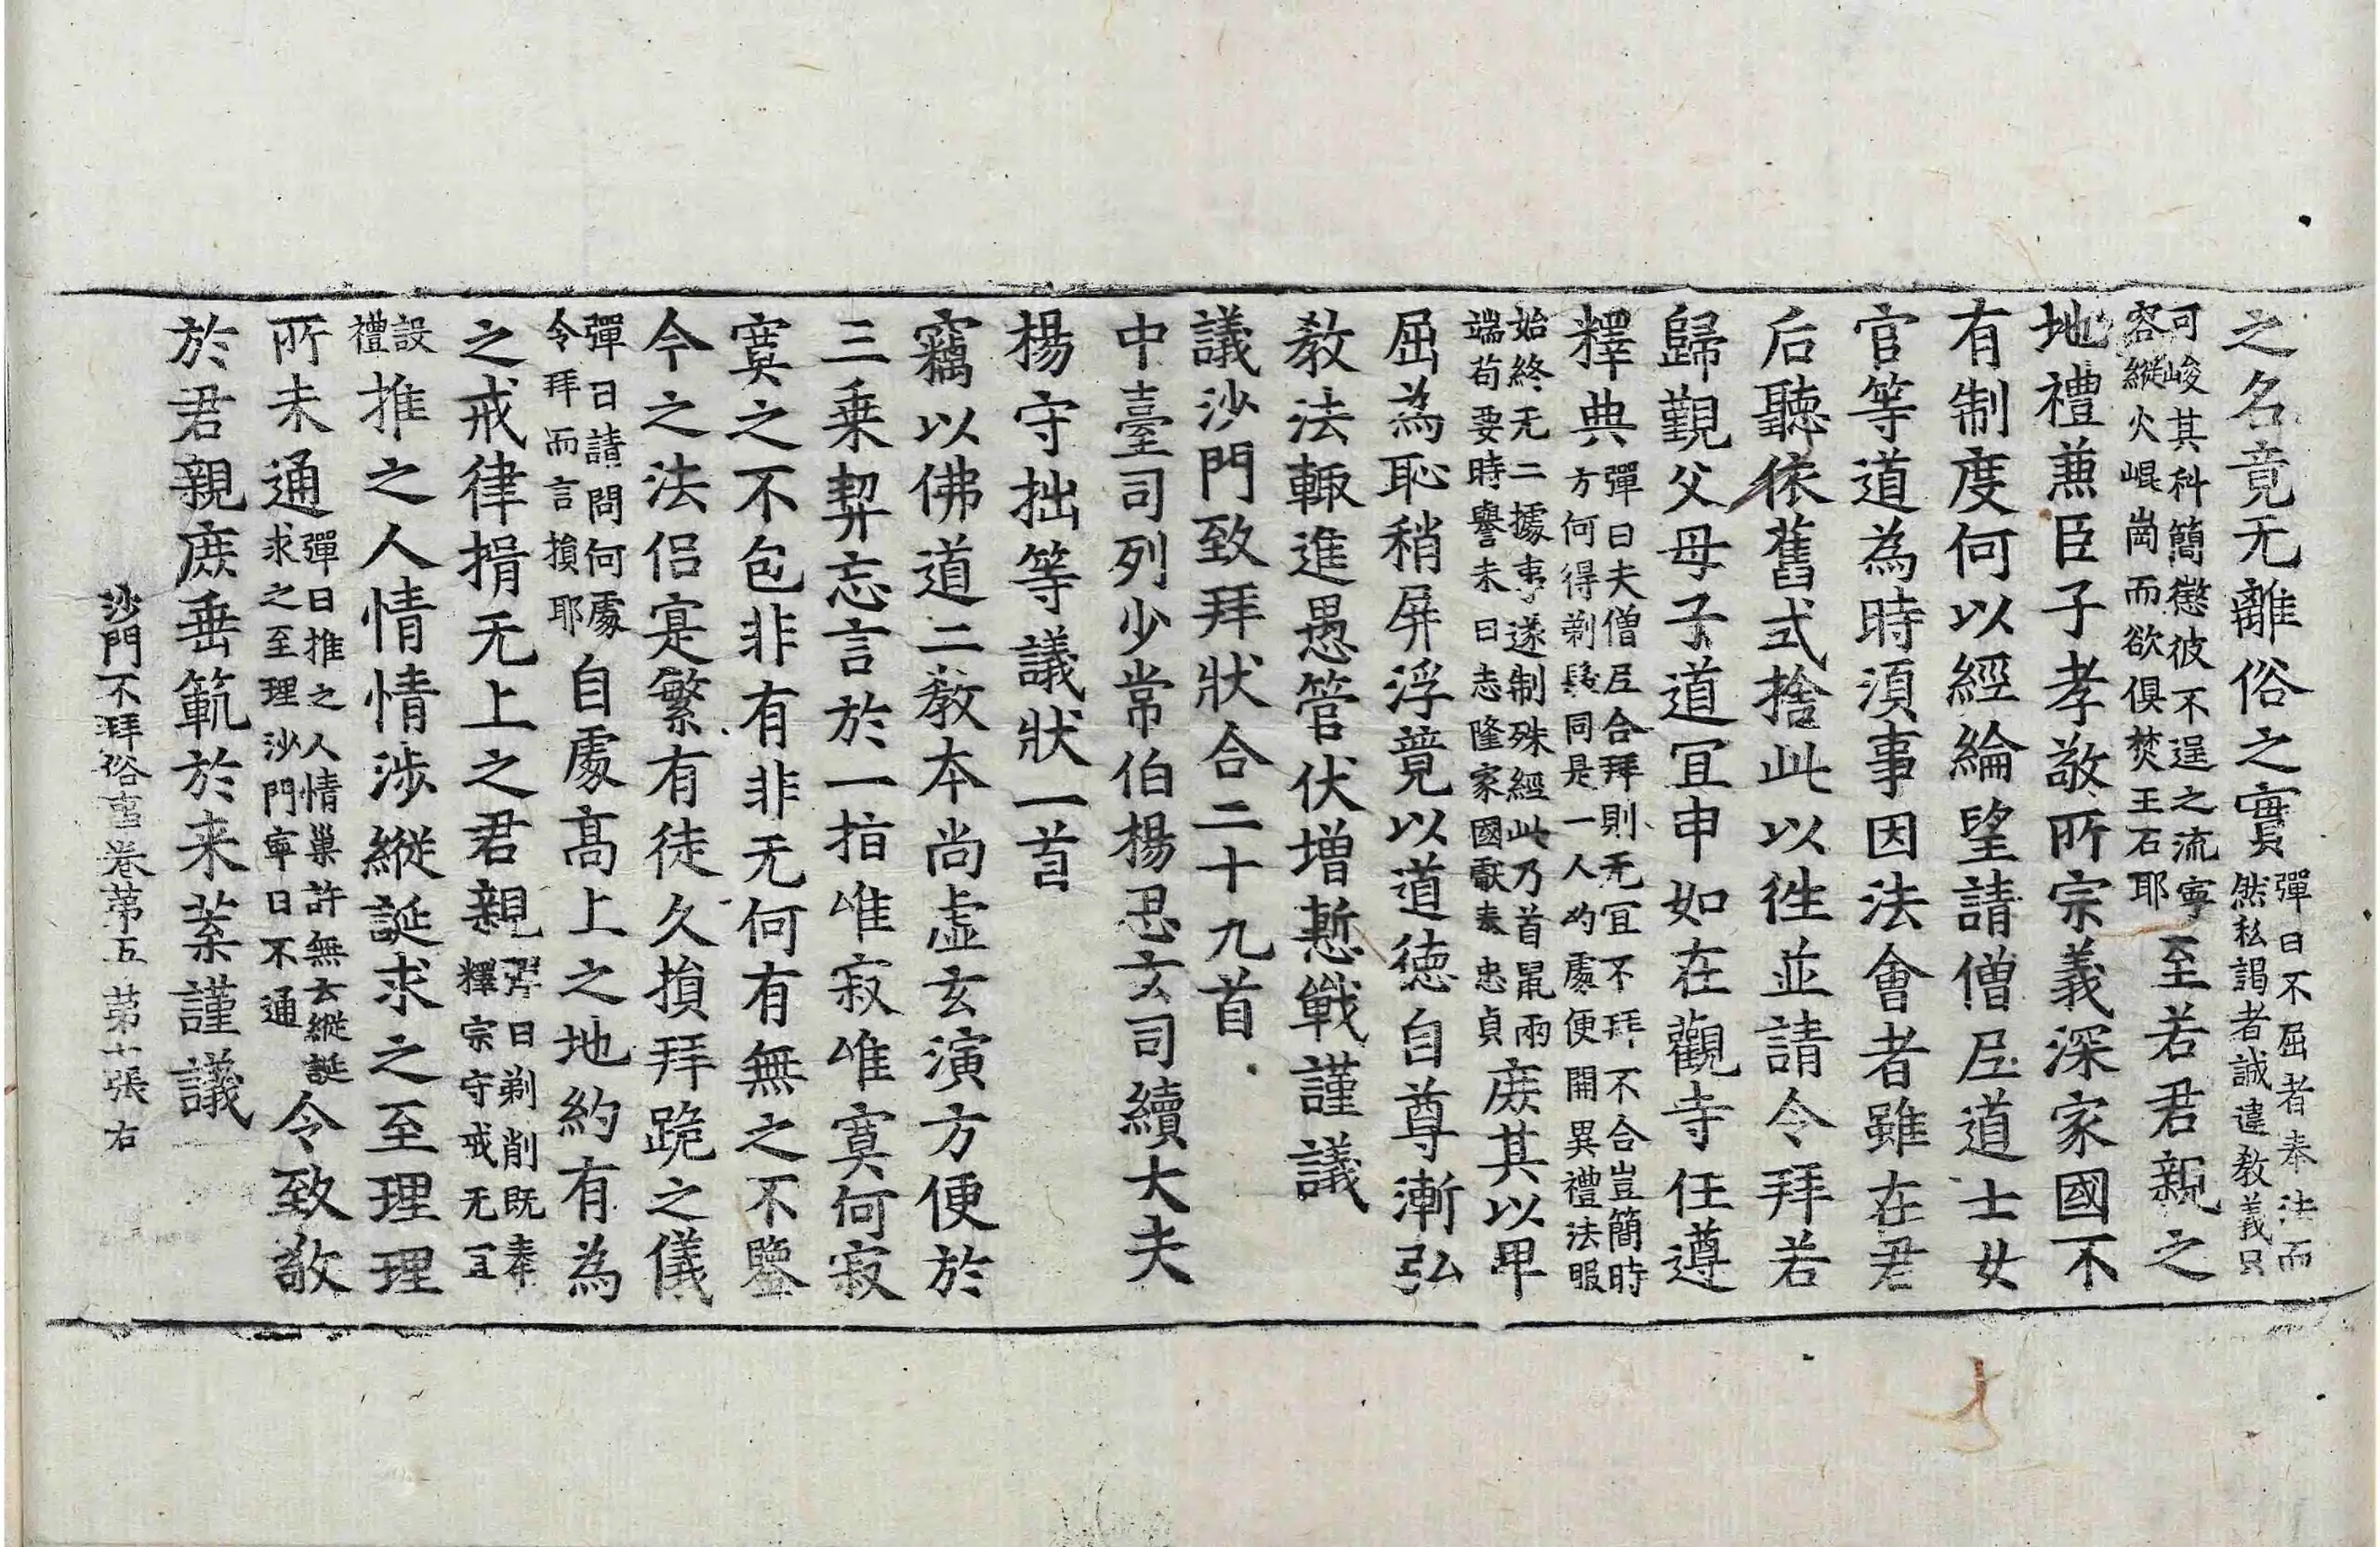 之名竟无離俗之實彈曰不屈者奉法而然私謁者誠違教義只
可峻其科簡懲彼不逞之流寧容縱火崐崗而欲俱焚王石耶至若君親之
地禮兼臣子孝敬所宗義深家國不
有制度何以經綸望請僧尼道士女
官等道為時須事因法會者雖在君
后聽依舊式捨此以往並請令拜若
歸覲父母子道宜申如在觀寺任遵
釋典彈曰夫僧尼合拜則无宜不拜不合豈簡時方何得剃髮同是一人約處便開異禮法服
始終无二據事遂制殊經此乃首鼠兩端苟要時譽未曰志隆家國獻素忠貞庻其以卑
屈為恥稍屏浮競以道德自尊漸弘
教法輙進愚管伏增慙戰謹議
議沙門致拜狀合二十九首
中臺司列少常伯楊思玄司續大夫
楊守拙等議狀一首
竊以佛道二教本尚虛玄演方便於
三乗契忘言於一指唯寂唯寞何寂
寞之不包非有非无何有無之不鑒
今之法侶寔繁有徒久損拜跪之儀
彈曰請問何處令拜而言損耶自處髙上之地約有為
之戒律捐无上之君親彈曰剃削既奉釋宗守戒无宜
設禮推之人情情涉縱誕求之至理理
所未通彈曰推之人情巢許無云縱誕求之至理沙門寧曰不通令致敬
於君親庻垂範於来葉謹議
沙門不拜俗事卷第五 第十張 右